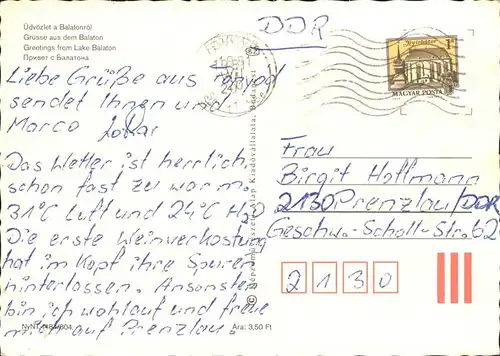 Üdvözlet a Balatonról
Grüsse aus dem Balaton
Greetings from Lake Balaton
Привет с Балатона
DDR
1Ft
MAGYAR POSTA
Liebe Grüße aus Fonyod
sendet Ihnen und
Marco Lokar
Das Wetter ist herrlich,
schon fast zu warm.
31°C Luft und 24°C H2O
Die erste Weinverkostung
hat im Kopf ihre Spuren
hinterlassen. Ansonsten
bin ich wohlauf und freue
mich auf Prenzlau.
Frau
Birgit Hoffmann
2130 Prenzlau/DDR
Geschw.-Scholl-Str. 62
2130
Ára: 3,50 Ft